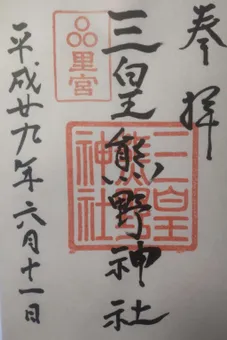 奉拝
三皇熊野神社
里宮
三皇熊野神社
平成廿九年六月十一日